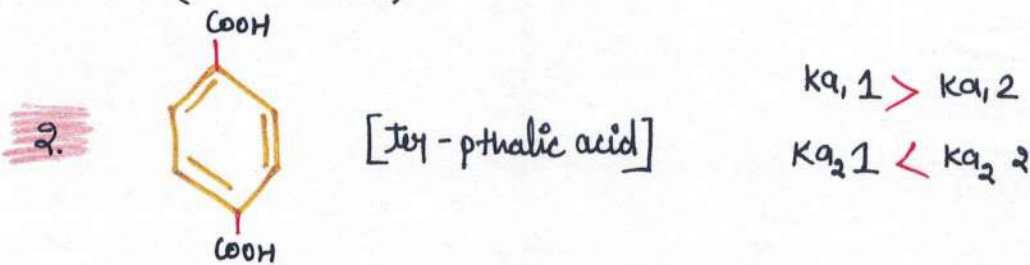 COOH
2.
[ter-pthalic acid]
COOH
Ka, 1 > Ka, 2
Ka₂ 1 < Ka₂ 2